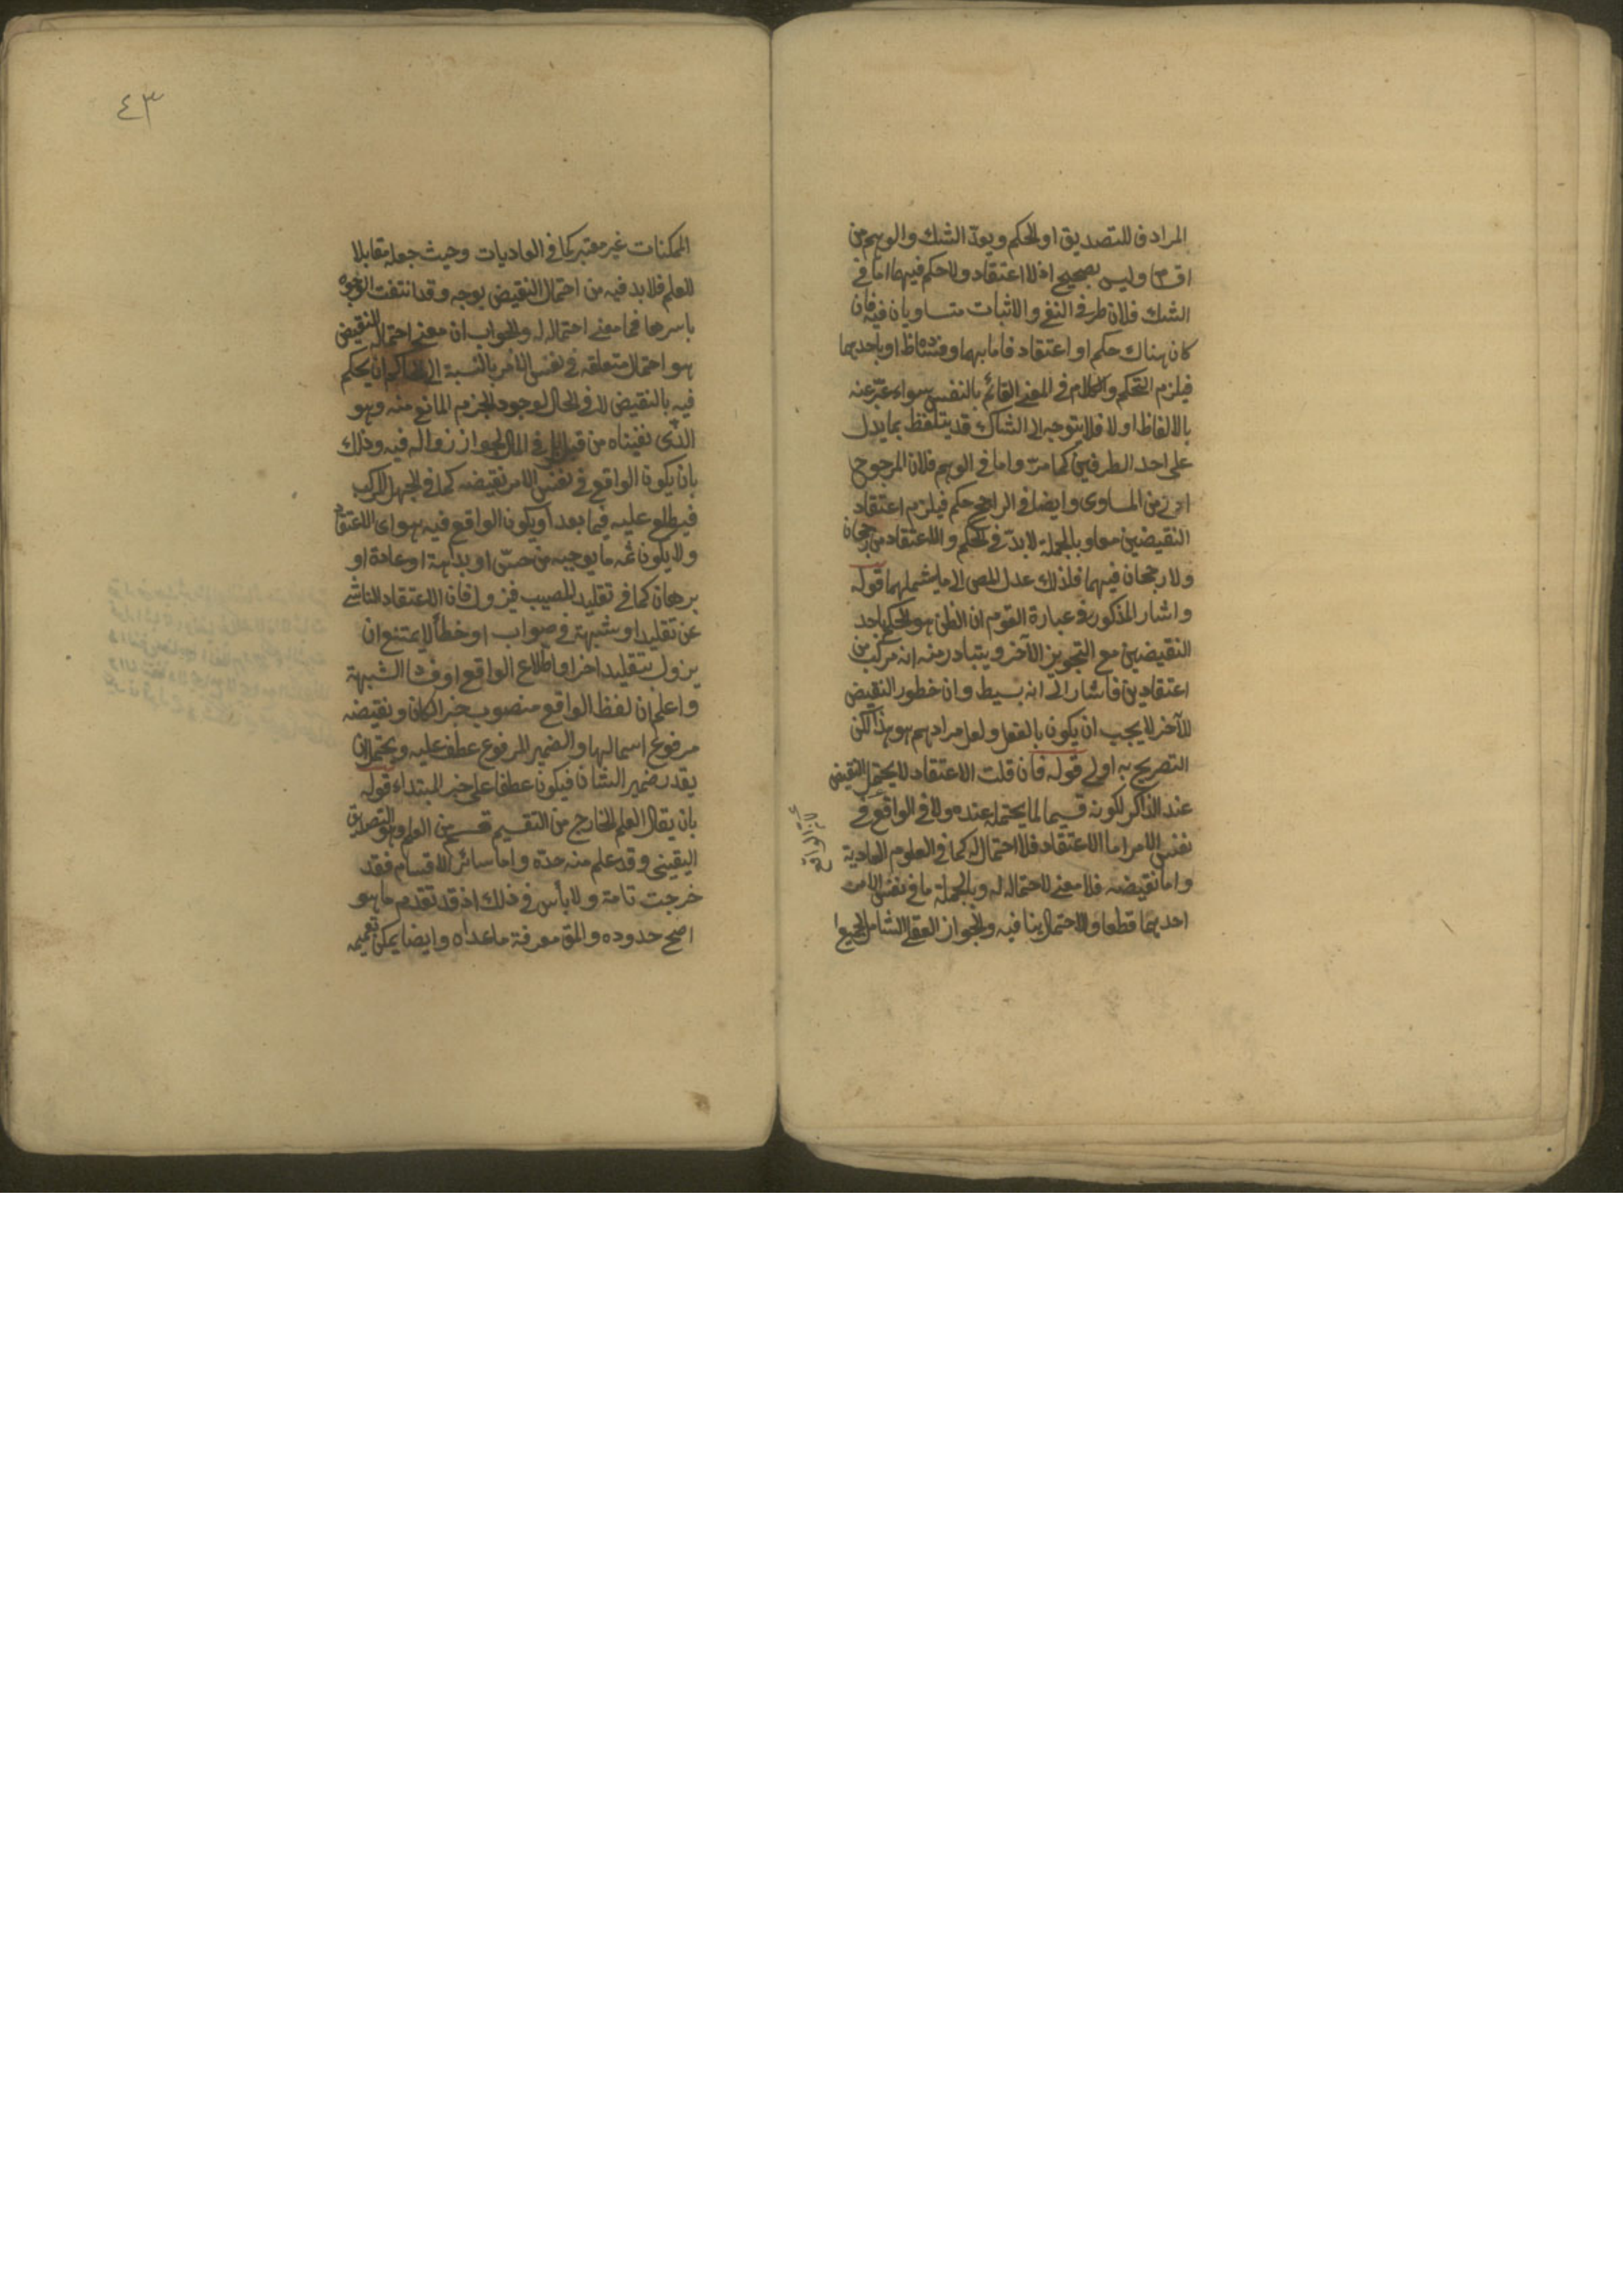 المرادف للتصديق او الحكم ويعدّ الشك والوهم من
اق‍ا‍م‍ه وليس بصحيح اذ لا اعتقاد ولا حكم فيهما اما في
الشك فلان طرفي النفي والاثبات متساويان فيه فان
كان هناك حكم او اعتقاد فاما بهما وفساده ظ او باحدهما
فيلزم التحكم والكلام في المعنى القائم بالنفس سواء عبّر عنه
بالالفاظ او لا فلا يتوجه ان الشاك قد يتلفظ بما يدل
على احد الطرفين كما مرّ واما في الوهم فلان المرجوح
ادنى من المساوى وايضا في الراجح حكم فيلزم اعتقاد
النقيضين معا وبالجملة لا بدّ في الحكم والاعتقاد من رجحان
ولا رجحان فيهما فلذلك عدل المص الى ما يشملهما قوله
واشار المذكور في عبارة القوم ان الظن هو الحكم باحد
النقيضين مع التجويز الآخر ويتبادر منه انه مركب من
اعتقادين فاشار الى انه بسيط وان خطور النقيض
الآخر لا يجب ان يكون بالفعل ولعل مرادهم هو هذا لكن
التصريح به اولى قوله فان قلت الاعتقاد لا يحتمل النقيض
عند الذاكر لكونه قسيما لما يحتمله عنده ولا في الواقع في
نفس الامر اما الاعتقاد فلا احتمال له كما في العلوم العادية
واما نقيضه فلا معنى لاحتماله له وبالجملة ما في نفس الامر
احدهما قطعا والاحتمال ينافيه والجواز العقلي الشامل لجميع
الواقع
٤٣
الممكنات غير معتبر كما في العاديات وحيث جعله مقابلا
للعلم فلا بد فيه من احتمال النقيض بوجه وقد انتفت الوجوه
باسرها فما معنى احتماله له والجواب ان معنى احتماله النقيض
هو احتمال متعلقه في نفس الامر بالنسبة الى الحاكم ان يحكم
فيه بالنقيض لا في الحال لوجود الجزم المانع منه وهو
الذي نفيناه من قبل بل في المآل لجواز زواله فيه وذلك
بان يكون الواقع في نفس الامر نقيضه كما في الجهل المركب
فيطلع عليه فيما بعد او يكون الواقع فيه هو اى الاعتقاد
ولا يكون ثمه ما يوجبه من حسّ او بداهة او عادة او
برهان كما في تقليد المصيب فيزول فان الاعتقاد الناشئ
عن تقليد او شبهة في صواب او خطأ لا يمتنع ان
يزول بتقليد اخر او اطلاع الواقع او فساد الشبهة
واعلم ان لفظ الواقع منصوب خبر الكان ونقيضه
مرفوع اسما لها والضمير المرفوع عطف عليه ويحتمل ان
يقدر ضمير الشان فيكون عطفا على خبر المبتداء قوله
بان يقال العلم الخارج من التقسيم قسم من العلم وهو التصديق
اليقيني وقد علم منه حدّه واما سائر الاقسام فقد
خرجت تامة ولا بأس في ذلك اذ قد تقدم ما هو
اصح حدوده والمق معرفة ما عداه وايضا يمكن تعميمه